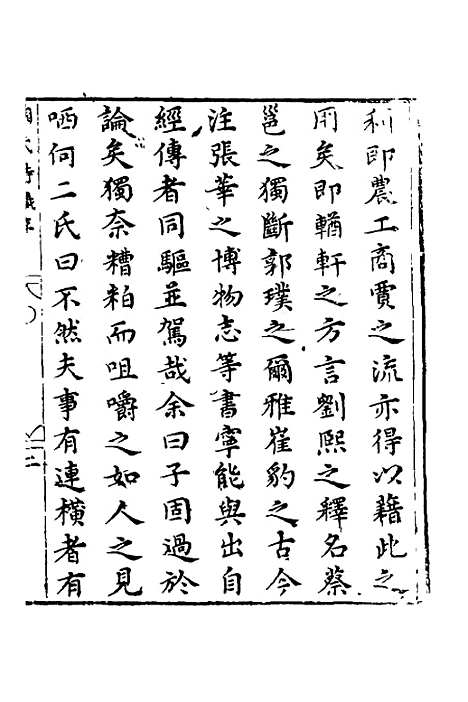 利即農工商賈之流亦得以藉此之
用矣即輶軒之方言劉熙之釋名蔡
邕之獨斷郭璞之爾雅崔豹之古今
注張華之博物志等書寧能與出自
經傳者同驅並駕哉余曰子固過於
論矣獨奈糟粕而咀嚼之如人之見
哂何二氏曰不然夫事有連橫者有